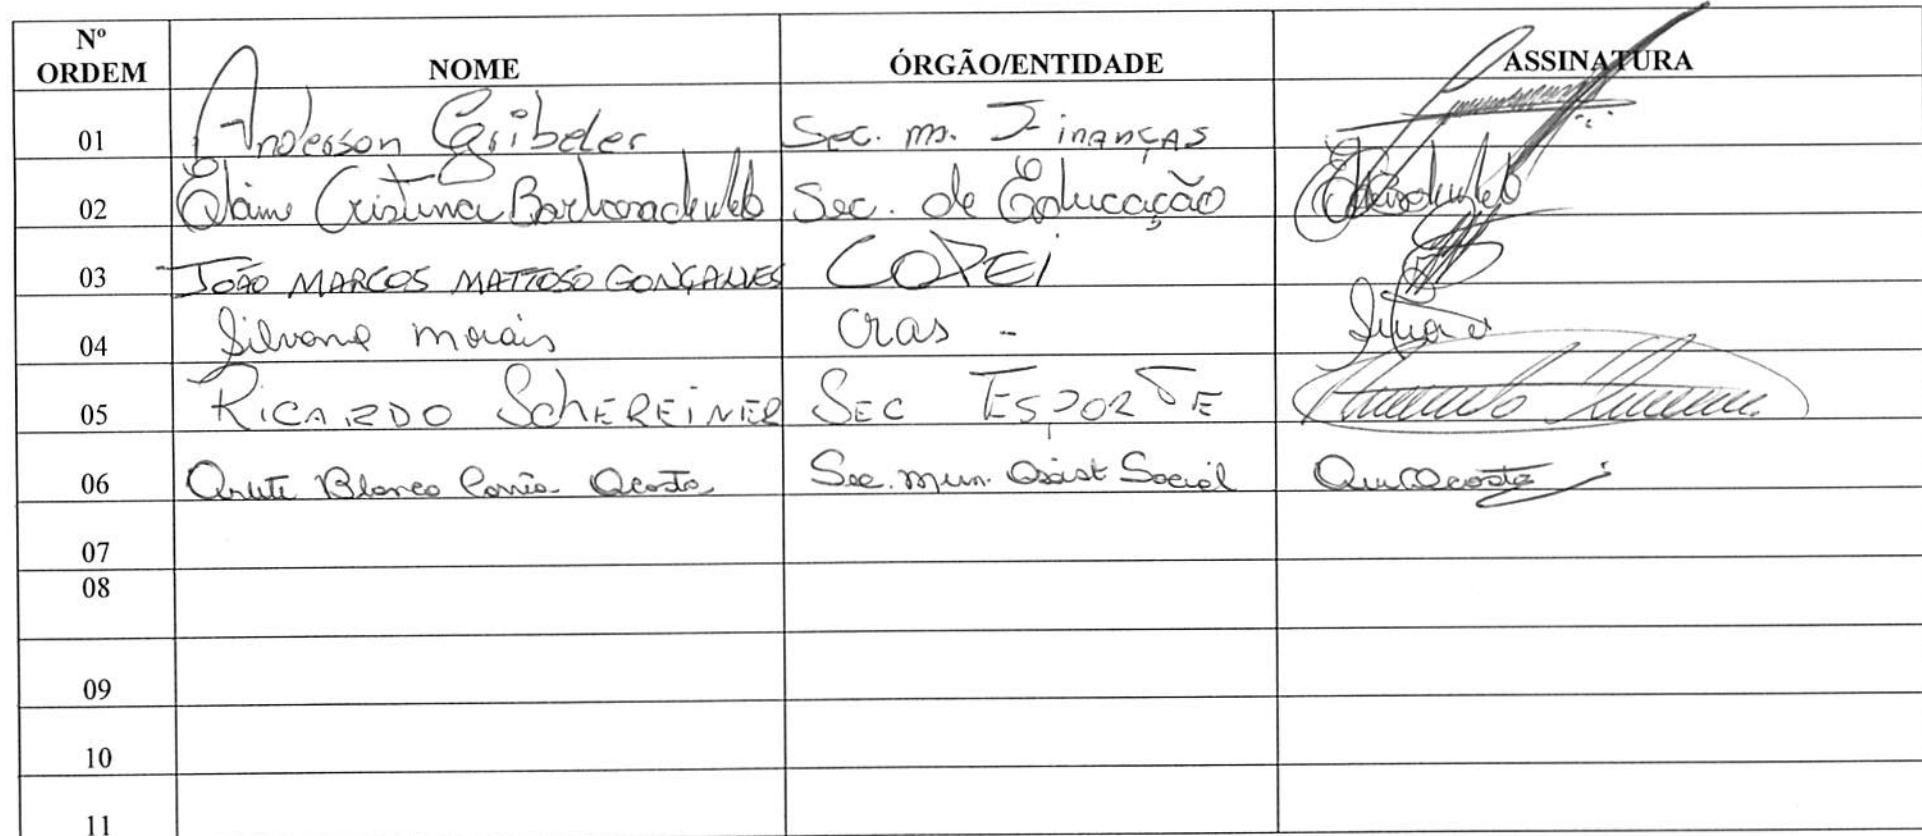 Nº ORDEM NOME ÓRGÃO/ENTIDADE ASSINATURA
01 Anderson Gribeler Sec. m. Finanças
02 Elaine Cristina Sec. de Educação
03 JOÃO MARCOS MATTOSO GONÇALVES COPEI
04 Silvana morais Cras -
05 RICARDO SCHEREINER SEC ESPORTE
06 Blanco Acosta Sec. mun. Assist Social
07
08
09
10
11